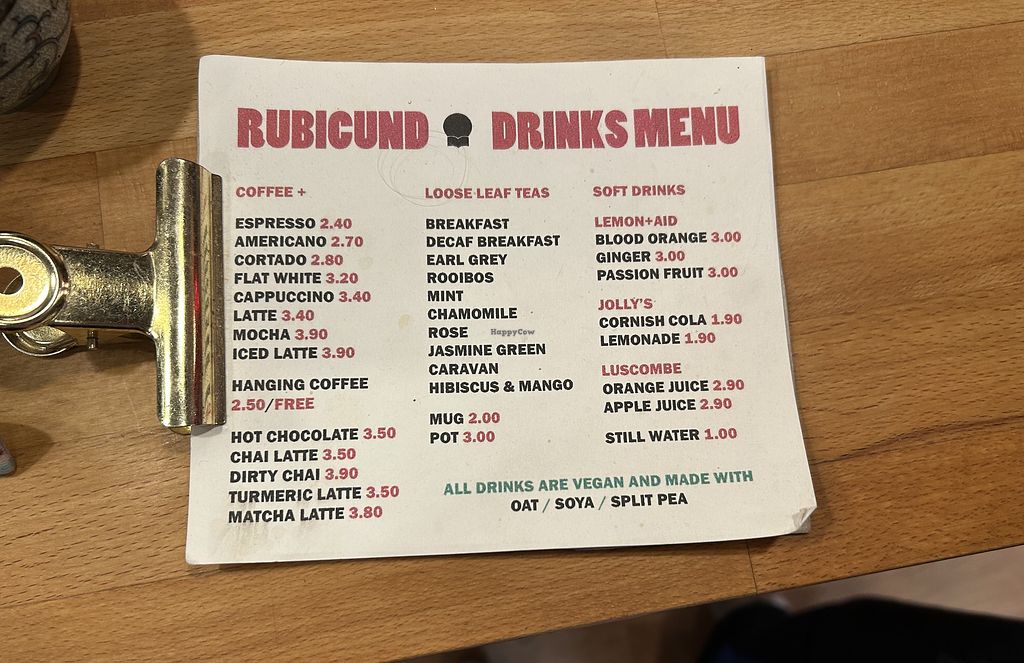 RUBICUND DRINKS MENU
COFFEE +
ESPRESSO 2.40
AMERICANO 2.70
CORTADO 2.80
FLAT WHITE 3.20
CAPPUCCINO 3.40
LATTE 3.40
MOCHA 3.90
ICED LATTE 3.90
HANGING COFFEE
2.50/FREE
HOT CHOCOLATE 3.50
CHAI LATTE 3.50
DIRTY CHAI 3.90
TURMERIC LATTE 3.50
MATCHA LATTE 3.80
LOOSE LEAF TEAS
BREAKFAST
DECAF BREAKFAST
EARL GREY
ROOIBOS
MINT
CHAMOMILE
ROSE
JASMINE GREEN
CARAVAN
HIBISCUS & MANGO
MUG 2.00
POT 3.00
SOFT DRINKS
LEMON+AID
BLOOD ORANGE 3.00
GINGER 3.00
PASSION FRUIT 3.00
JOLLY'S
CORNISH COLA 1.90
LEMONADE 1.90
LUSCOMBE
ORANGE JUICE 2.90
APPLE JUICE 2.90
STILL WATER 1.00
ALL DRINKS ARE VEGAN AND MADE WITH
OAT / SOYA / SPLIT PEA
HappyCow